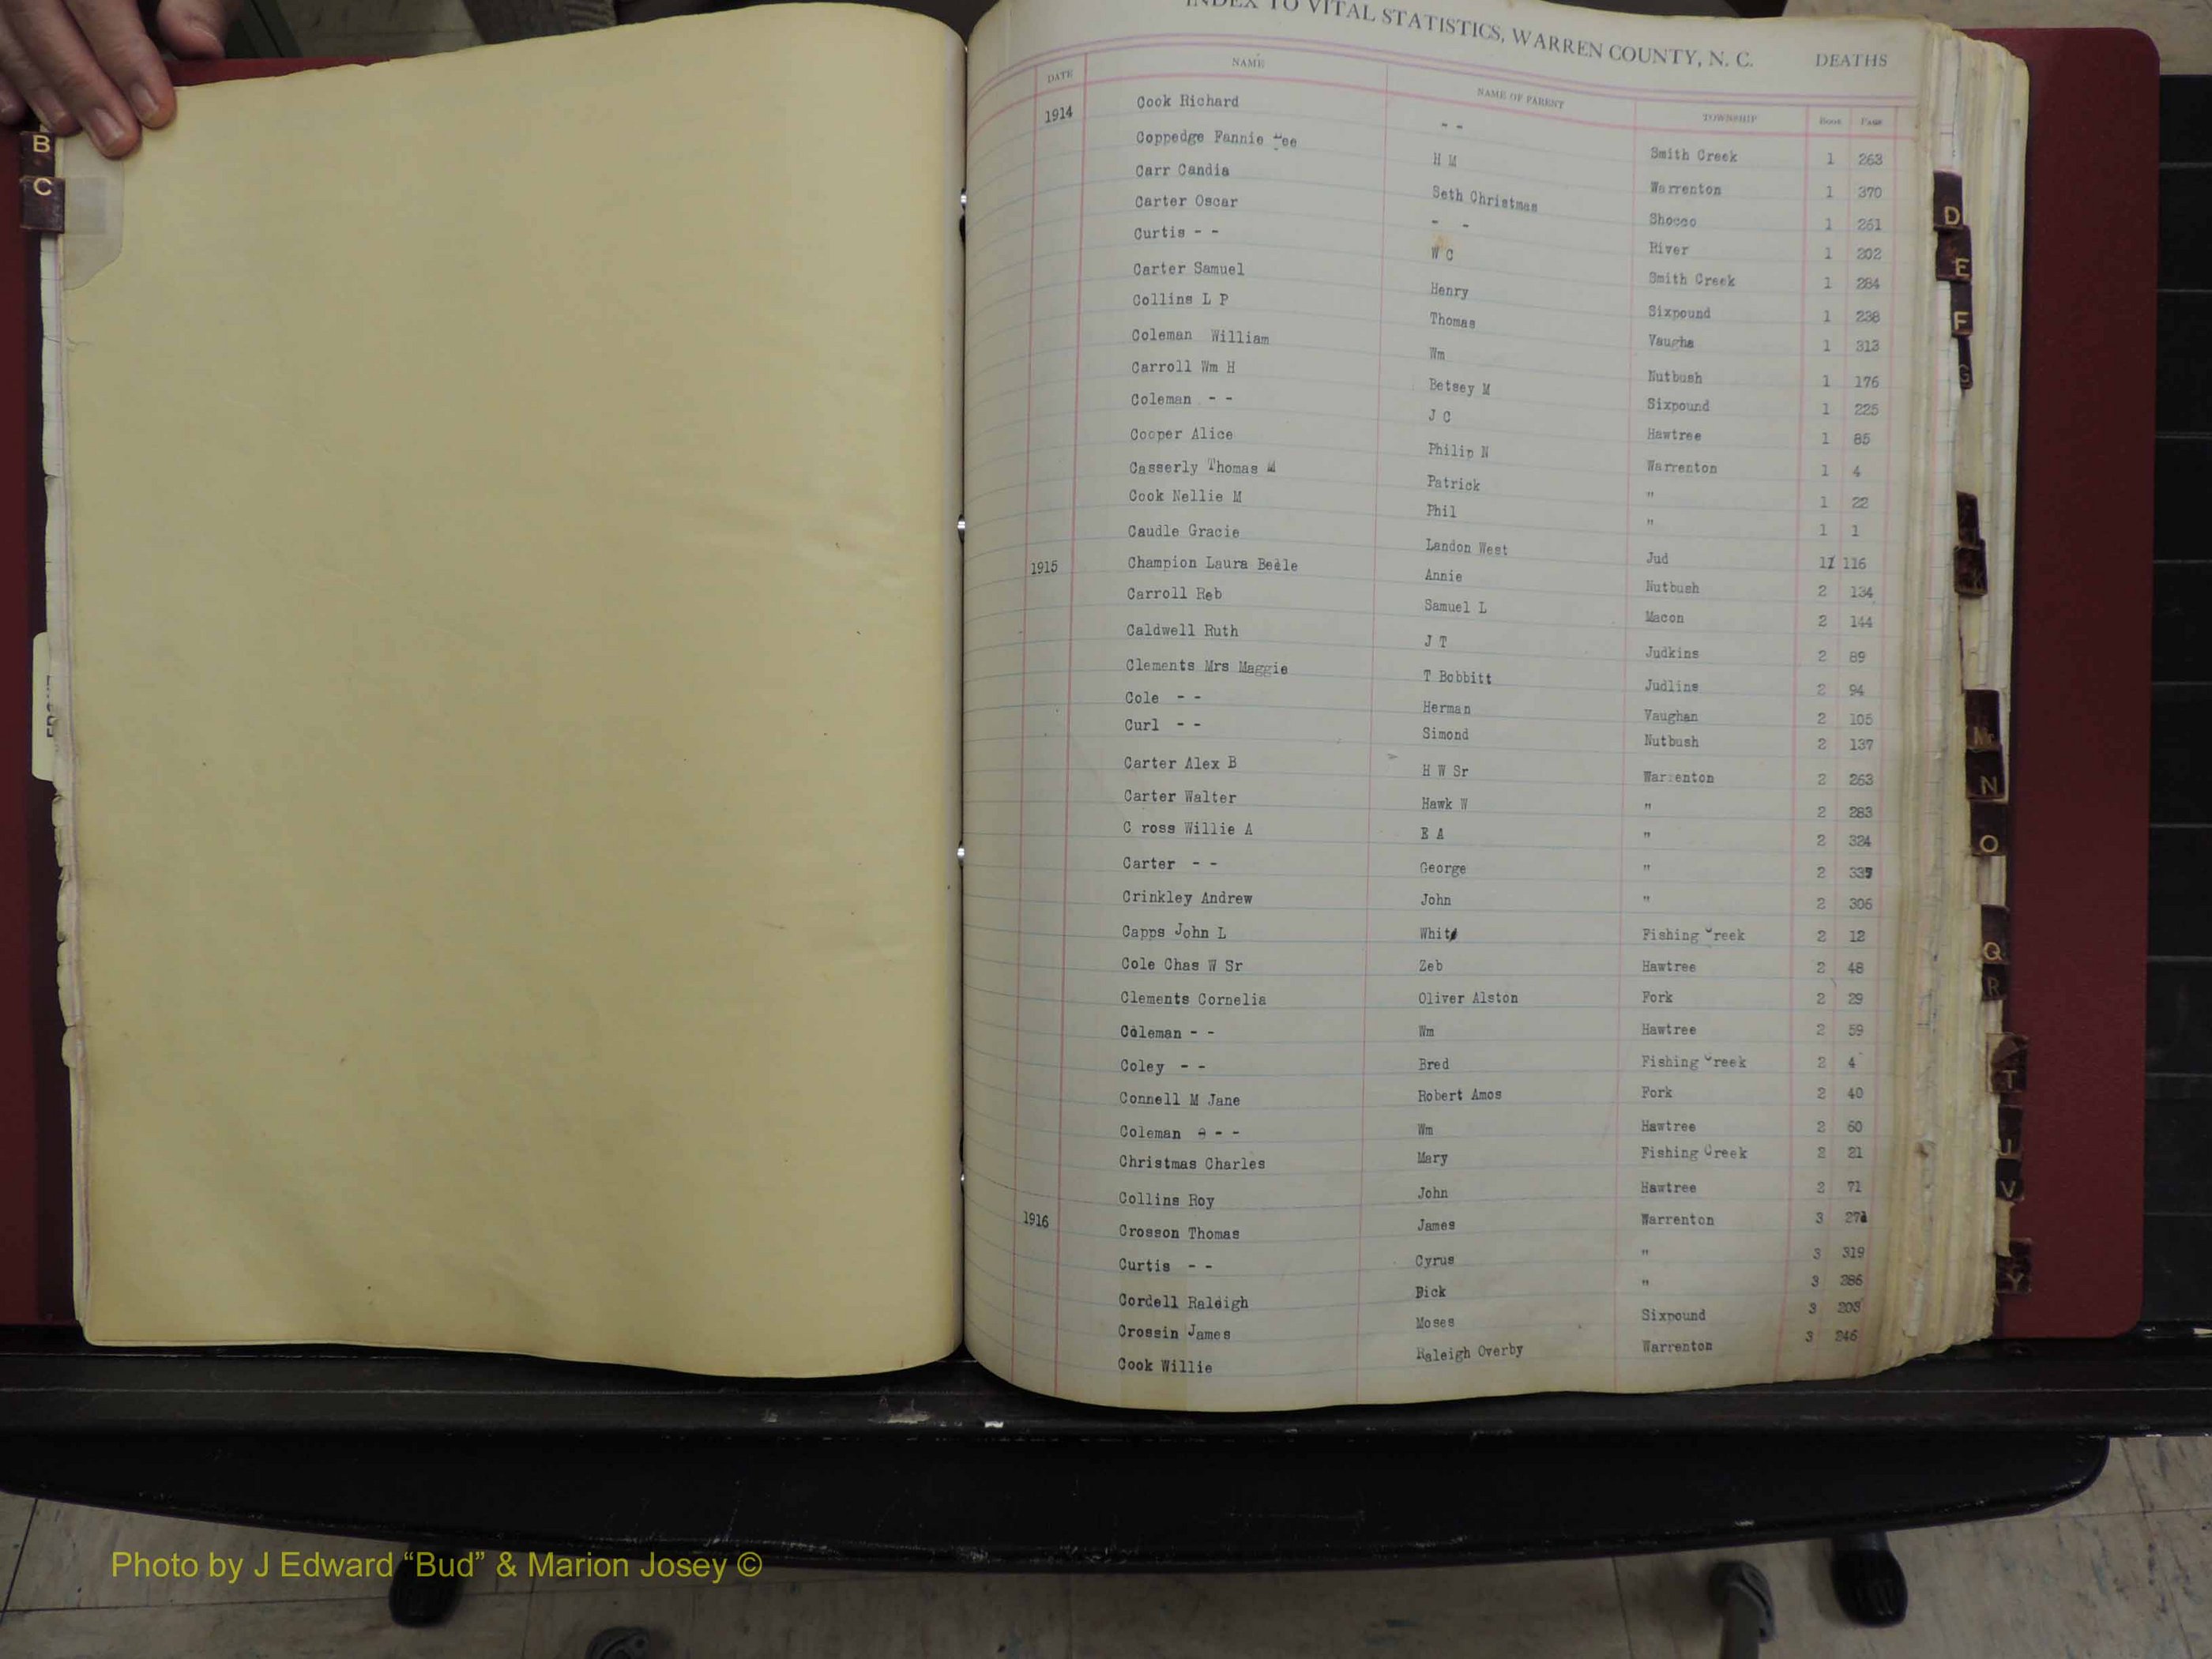 INDEX TO VITAL STATISTICS, WARREN COUNTY, N. C. DEATHS
DATE NAME NAME OF PARENT TOWNSHIP Book Page
1914 Cook Richard - - Smith Creek 1 263
Coppedge Fannie Lee H M Warrenton 1 370
Carr Candia Seth Christmas Shocco 1 261
Carter Oscar - - River 1 202
Curtis - - W C Smith Creek 1 284
Carter Samuel Henry Sixpound 1 238
Collins L P Thomas Vaugha 1 313
Coleman William Wm Nutbush 1 176
Carroll Wm H Betsey M Sixpound 1 225
Coleman - - J C Hawtree 1 85
Cooper Alice Philip N Warrenton 1 4
Casserly Thomas M Patrick " 1 22
Cook Nellie M Phil " 1 1
Caudle Gracie Landon West Jud 1 116
1915 Champion Laura Belle Annie Nutbush 2 134
Carroll Reb Samuel L Macon 2 144
Caldwell Ruth J T Judkins 2 89
Clements Mrs Maggie T Bobbitt Judlins 2 94
Cole - - Herman Vaughan 2 105
Curl - - Simond Nutbush 2 137
Carter Alex B H W Sr Warrenton 2 263
Carter Walter Hawk W " 2 283
C ross Willie A E A " 2 324
Carter - - George " 2
Crinkley Andrew John " 2 306
Capps John L Whit Fishing Creek 2 12
Cole Chas W Sr Zeb Hawtree 2 48
Clements Cornelia Oliver Alston Fork 2 29
Coleman - - Wm Hawtree 2 59
Coley - - Bred Fishing Creek 2 4
Connell M Jane Robert Amos Fork 2 40
Coleman - - Wm Hawtree 2 60
Christmas Charles Mary Fishing Creek 2 21
Collins Roy John Hawtree 2 71
1916 Crosson Thomas James Warrenton 3
Curtis - - Cyrus " 3 319
Cordell Raleigh Dick " 3 286
Crossin James Moses Sixpound 3 203
Cook Willie Raleigh Overby Warrenton 3 246
B
C
D
E
F
G
K
Mc
N
O
Q
R
T
U
V
Y
Photo by J Edward “Bud” & Marion Josey ©